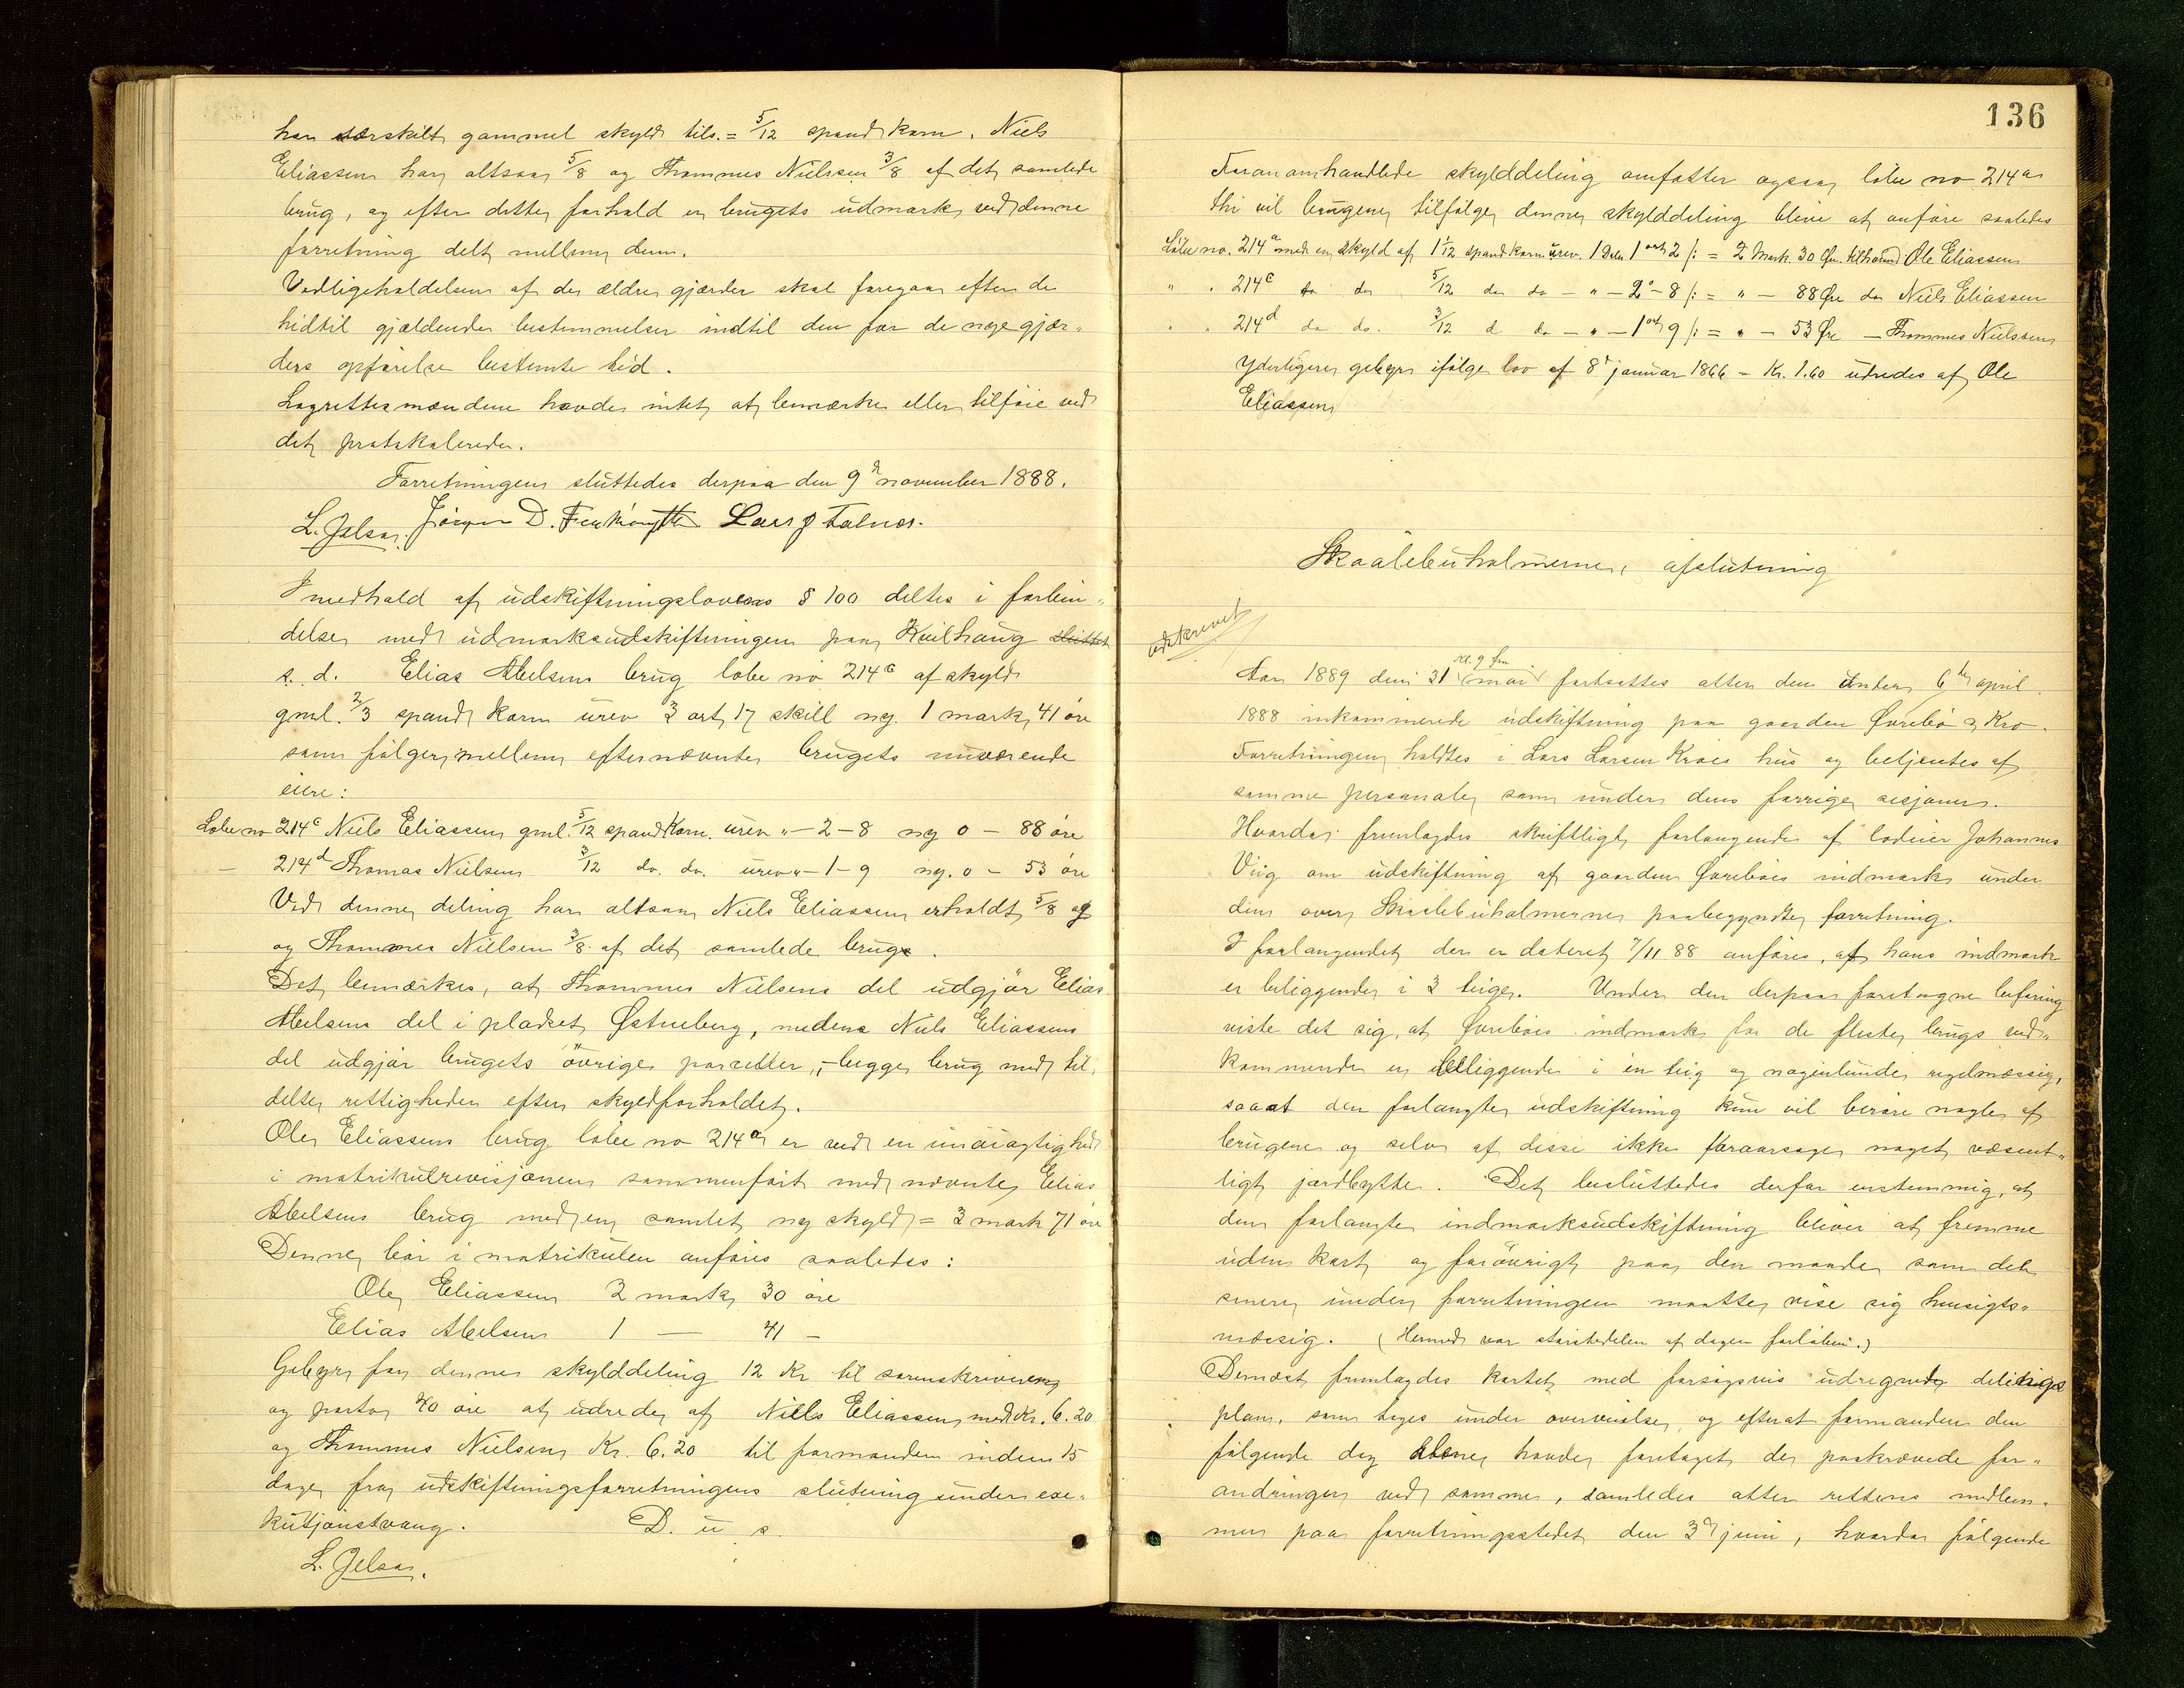 har særskilt gammel skyld tils. = 5/12 spand korn. Niels
Eliassen har altsaa 5/8 og Thommes Nielssen 3/8 af det samlede
brug, og efter dette forhold er brugets udmark ved denne
forretning delt mellem dem.
Vedligeholdelsen af de ældre gjærder skal foregaa efter de
hidtil gjældende bestemmelser indtil den for de nye gjær-
ders opførelse bestemte tid.
Lagrettesmændene havde intet at bemærke eller tilføie ved
det protokolerede.
Forretningen sluttedes derpaa den 9de november 1888.
L. Jelsa. Jørgen D. Lars J Falnes.
I medhold af udskiftningslovens § 100 deltes i forbin-
delse med udmarksudskiftningen paa Kvilhaug sluttet
s. d. Elias Abelsens brug løbe no 214c af skyld
gml. 2/3 spand korn urev 3 ort 17 skill ny. 1 mark 41 øre
som følger mellem efternævnte brugets nuværende
eiere:
Løbe no 214c Niels Eliassen gml. 5/12 spand korn. urev "-2-8 ny 0 - 88 øre
- 214d Thomas Nielsen 3/12 do. do. urev "-1-9 ny. 0 - 53 øre
Ved denne deling har altsaa Niels Eliassen erholdt 5/8 og
og Thommes Nielsen 3/8 af det samlede brug.
Det bemærkes, at Thommes Nielsens del udgjør Elias
Abelsens del i pladset Østneberg, medens Niels Eliassens
del udgjør brugets øvrige parceller, - begge brug med til-
delte rettigheder efter skyldforholdet.
Ole Eliassens brug løbe no 214a er ved en unøiagtighed
i matrikulrevisjonen sammenført med nævnte Elias
Abelsens brug med en samlet ny skyld = 3 mark 71 øre
Denne bør i matrikulen anføres saaledes:
Ole Eliassen 2 mark 30 øre
Elias Abelsen 1 — 41 -
Gebyr for denne skylddeling 12 Kr til sorenskriveren
og porto 40 øre at udrede af Niels Eliassen med Kr. 6.20
og Thommes Nielsen Kr. 6.20 til formanden inden 15
dage fra udskiftningsforretningens slutning under exe-
kutjonstvang. D. u s.
L. Jelsa.
136
Foranomhandlede skylddeling omfatter ogsaa løbe no 214a
thi vil brugene tilfølge denne skylddeling blive at anføre saaledes
Løbe no. 214a med en skyld af 1 1/12 spand korn urev. 1 Daler 1 ort 2 /: = 2 Mark. 30 Øre. tilhørende Ole Eliassen
" " 214c do do 5/12 do do - " - 2° - 8 /: = " - 88 Øre do Niels Eliassen
" " 214d do do. 3/12 d do - " - 1 ort 9 /: = " - 53 Øre - Thommes Nielssen
Yderligere gebyr ifølge lov af 8de januar 1866 - Kr. 1.60 udredes af Ole
Eliassen
Skaalebuholmerne, afslutning
udskrevet
Kl. 9 fm
Aar 1889 den 31 mai fortsattes atter den under 6te april
1888 inkommerede udskiftning paa gaarden Øvrebø & Kro.
Forretningen holdtes i Lars Larsen Kroes hus og betjentes af
samme personale som under dens forrige sesjoner.
Hvorda fremlagdes skriftligt forlangende af lodeier Johannes
Viig om udskiftning af gaarden Øvrebøes indmark under
den over Skaalebuholmerne paabegyndte forretning.
I forlangendet der er dateret 7/11 88 anføres, at hans indmark
er beliggende i 3 teiger. Under den derpaa foretagne befaring
viste det sig, at Øvrebøes indmark for de fleste brugs ved-
kommende er beliggende i én teig og nogenlunde regelmæssig,
saaat den forlangte udskiftning kun vil berøre nogle af
brugene og selv af disse ikke foraarsage noget væsent-
ligt jordbytte. Det besluttedes derfor enstemmig, at
den forlangte indmarksudskiftning bliver at fremme
uden kart og forøvrigt paa den maade som det
senere under forretningen maatte vise sig hensigts-
mæsig. (Hermed var størstedelen af dagen forløben.)
Dernæst fremlagdes kartet med forsøgsvis udregnede delings
plan, som toges under overveielse, og efterat formanden den
følgende dag alene havde foretaget de paakrævede for-
andringer ved samme, samledes atter rettens medlem-
mer paa forretningsstedet den 3de juni, hvorda følgende